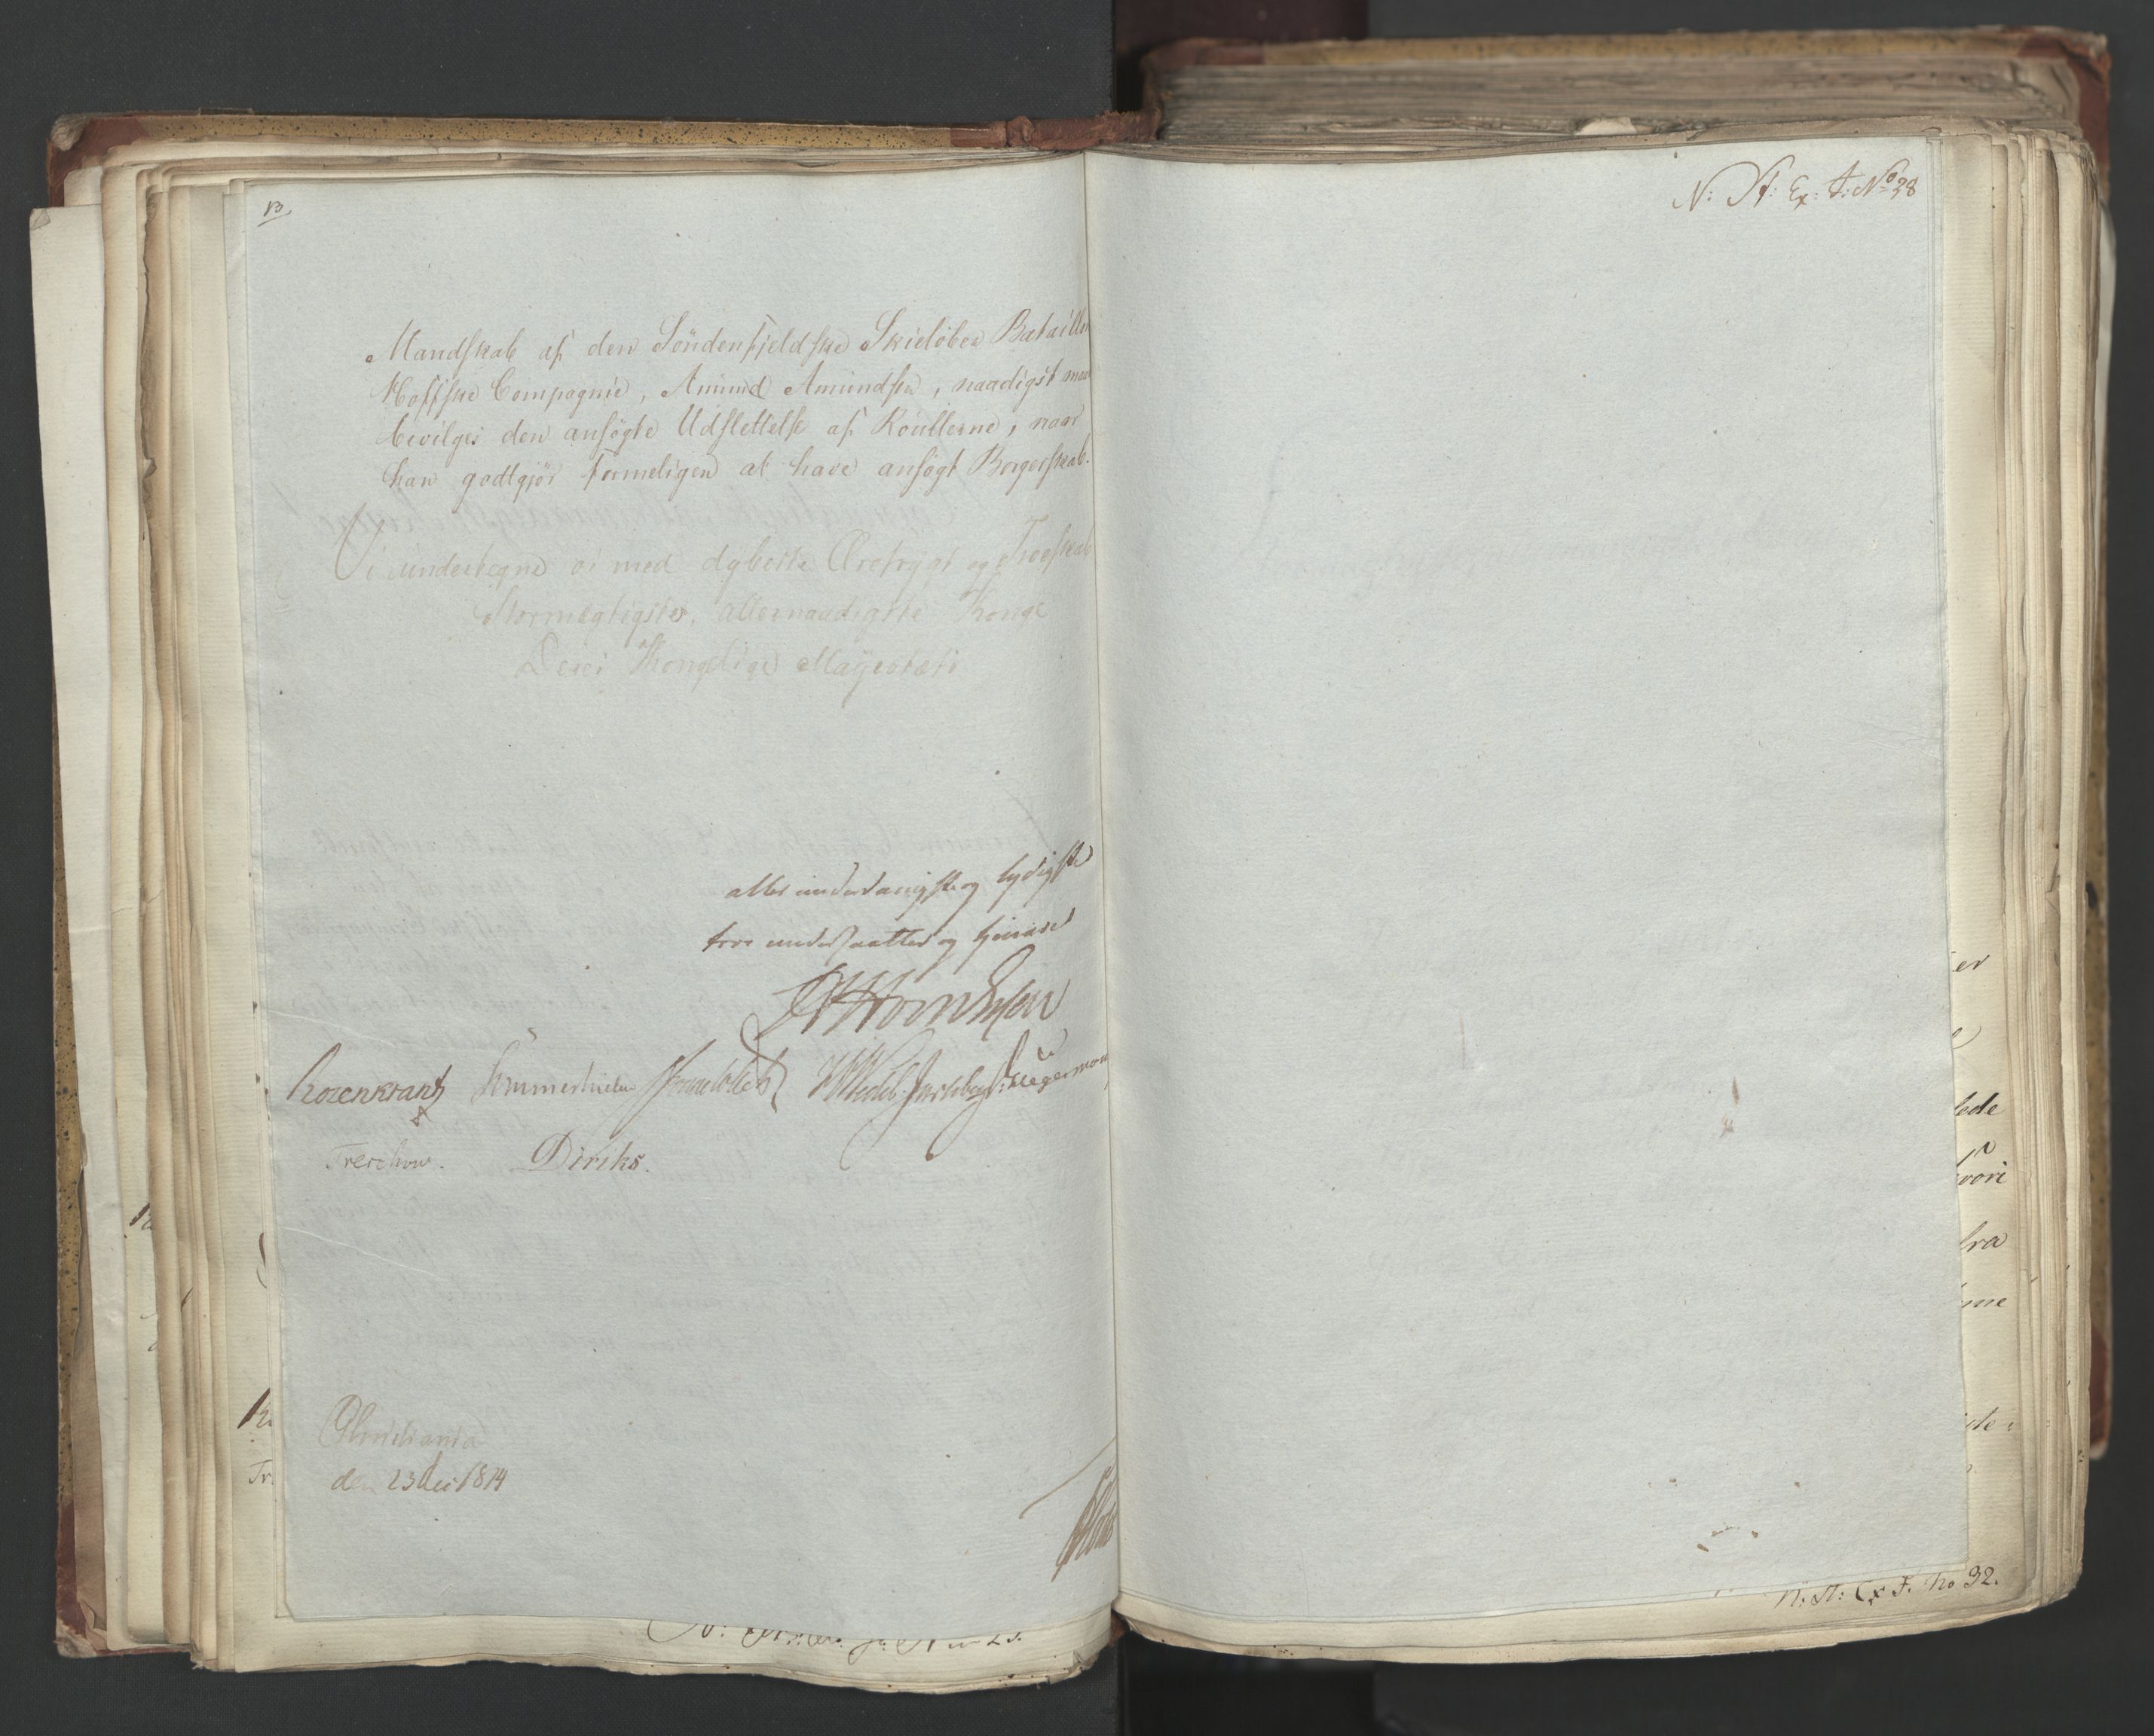 13
Mandskab af den Söndenfjeldske Skielöber Bataillon
Hoffske Compagnie, Amund Amundsen, naadigst maa
bevilges den ansögte Udslettelse af Roullerne, naar
han godtgjör formeligen at have ansögt Borgerskab.
Vi undertegne os med dybeste Ærefrygt og Troeskab
Stormægtigste, allernaadigste Konge
Deres Kongelige Mayestæts
allerunderdanigste og lydigste
troe undersaatter og tjenere
Rosenkrantz Sommerhielm HWedel-Jarlsberg Hegermann
Treschow. Diriks.
Christiania
den 23 Dec 1814
N: St: Ex: F: No 28
er
lede
fra
N: St: Ex F. No 32.